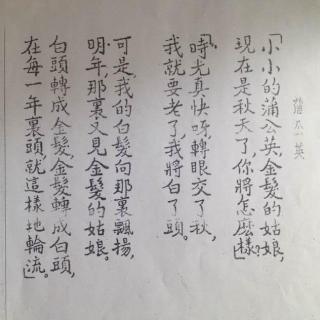 蒲公英
「小小的蒲公英,金髮的姑娘,
現在是秋天了,你將怎麼樣?」
「時光真快呀,轉眼交了秋,
我就要老了,我將白了頭。
可是我的白髮向那裏飄揚,
明年,那裏又見金髮的姑娘。
白頭轉成金髮,金髮轉成白頭,
在每一年裏頭,就這樣地輪流。」